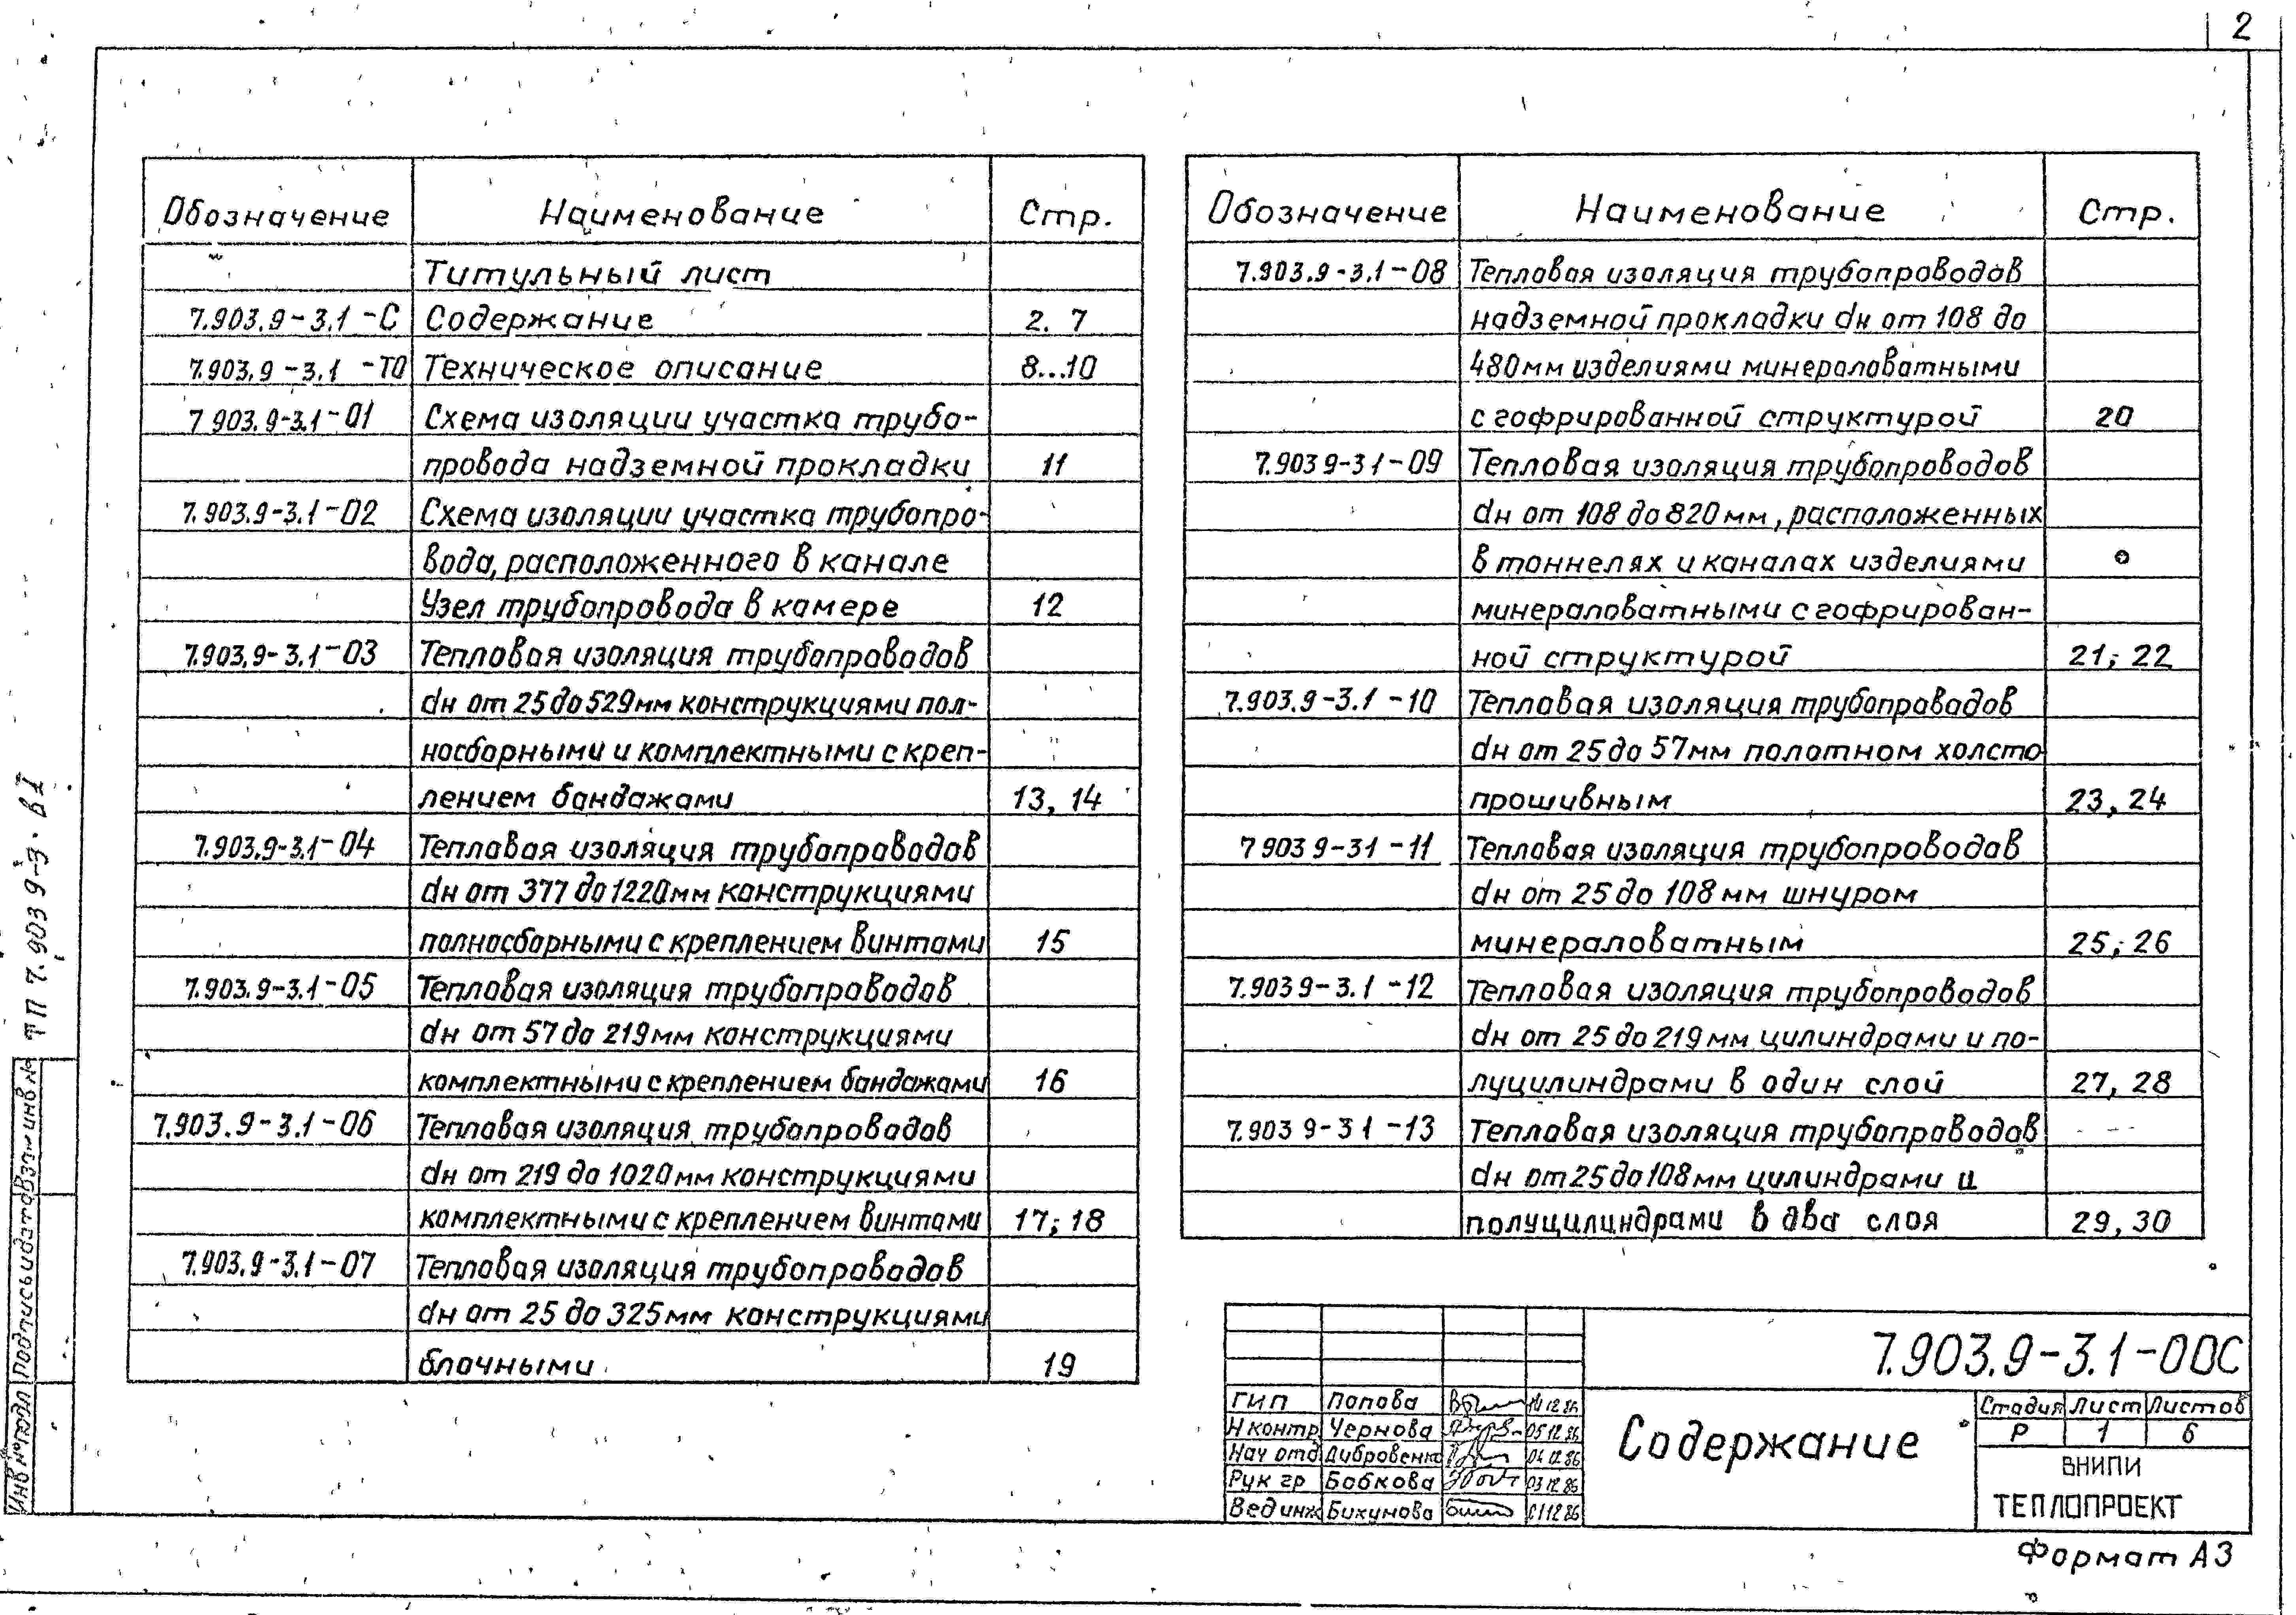 2
Обозначение Наименование Стр.
Титульный лист
7.903.9-3.1-С Содержание 2. 7
7.903.9-3.1-ТО Техническое описание 8...10
7 903.9-3.1-01 Схема изоляции участка трубо-
провода надземной прокладки 11
7.903.9-3.1-02 Схема изоляции участка трубопро-
вода, расположенного в канале
Узел трубопровода в камере 12
7.903.9-3.1-03 Тепловая изоляция трубопроводов
dн от 25 до 529мм конструкциями пол-
носборными и комплектными с креп-
лением бандажами 13, 14
7.903.9-3.1-04 Тепловая изоляция трубопроводов
dн от 377 до 1220мм конструкциями
полносборными с креплением винтами 15
7.903.9-3.1-05 Тепловая изоляция трубопроводов
dн от 57 до 219мм конструкциями
комплектными с креплением бандажами 16
7.903.9-3.1-06 Тепловая изоляция трубопроводов
dн от 219 до 1020мм конструкциями
комплектными с креплением винтами 17; 18
7.903.9-3.1-07 Тепловая изоляция трубопроводов
dн от 25 до 325мм конструкциями
блочными 19
Обозначение Наименование Стр.
7.903.9-3.1-08 Тепловая изоляция трубопроводов
надземной прокладки dн от 108 до
480мм изделиями минераловатными
с гофрированной структурой 20
7.903 9-3 1-09 Тепловая изоляция трубопроводов
dн от 108 до 820мм, расположенных
в тоннелях и каналах изделиями
минераловатными с гофрирован-
ной структурой 21; 22
7.903.9-3.1-10 Тепловая изоляция трубопроводов
dн от 25 до 57мм полотном холсто
прошивным 23, 24
7 903 9-31-11 Тепловая изоляция трубопроводов
dн от 25 до 108мм шнуром
минераловатным 25; 26
7.903 9-3.1-12 Тепловая изоляция трубопроводов
dн от 25 до 219мм цилиндрами и по-
луцилиндрами в один слой 27, 28
7.903 9-3 1-13 Тепловая изоляция трубопроводов
dн от 25 до 108мм цилиндрами и
полуцилиндрами в два слоя 29, 30
7.903.9-3.1-00С
ГИП Попова 12.86
Н контр Чернова 05 12.86
Нач отд Дибровенко 04 12.86
Рук гр Бобкова 03 12 86
Вед инж Бихунова 01 12 86
Содержание
Стадия Лист Листов
Р 1 6
ВНИПИ
ТЕПЛОПРОЕКТ
Формат А3
ТП 7.903 9-3. В1
Взам инв №
Подпись и дата
Инв № подл